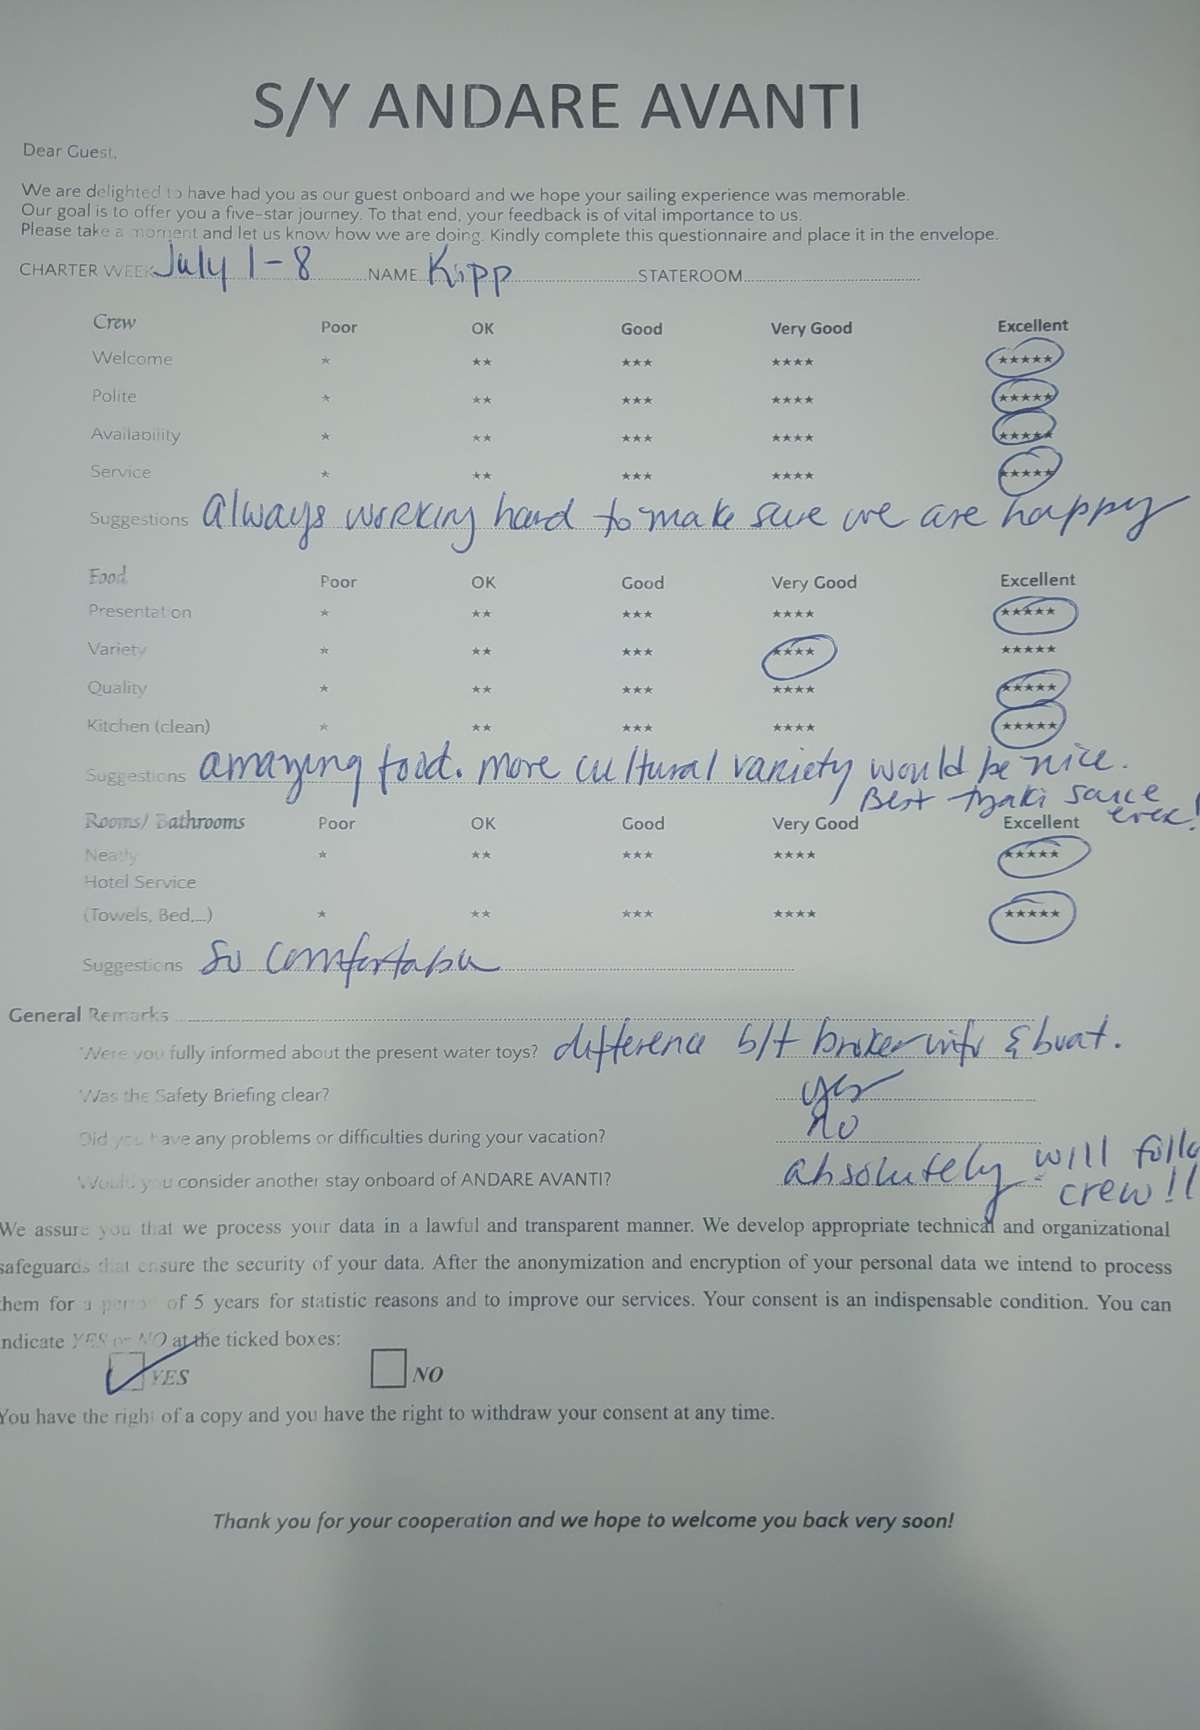 S/Y ANDARE AVANTI
Dear Guest,
We are delighted to have had you as our guest onboard and we hope your sailing experience was memorable.
Our goal is to offer you a five-star journey. To that end, your feedback is of vital importance to us.
Please take a moment and let us know how we are doing. Kindly complete this questionnaire and place it in the envelope.
CHARTER WEEK July 1-8 NAME Kipp STATEROOM
Crew Poor OK Good Very Good Excellent
Welcome * ** *** **** *****
Polite * ** *** **** *****
Availability * ** *** **** *****
Service * ** *** **** *****
Suggestions always working hard to make sure we are happy
Food Poor OK Good Very Good Excellent
Presentation * ** *** **** *****
Variety * ** *** **** *****
Quality * ** *** **** *****
Kitchen (clean) * ** *** **** *****
Suggestions amazing food. more cultural variety would be nice.
Best sauce ever!
Rooms/ Bathrooms Poor OK Good Very Good Excellent
Neatly * ** *** **** *****
Hotel Service
(Towels, Bed,...) * ** *** **** *****
Suggestions So comfortable
General Remarks
Were you fully informed about the present water toys? difference b/t broker info & boat.
Was the Safety Briefing clear? yes
Did you have any problems or difficulties during your vacation? no
Would you consider another stay onboard of ANDARE AVANTI? absolutely will follo
crew!!
We assure you that we process your data in a lawful and transparent manner. We develop appropriate technical and organizational
safeguards that ensure the security of your data. After the anonymization and encryption of your personal data we intend to process
them for a period of 5 years for statistic reasons and to improve our services. Your consent is an indispensable condition. You can
indicate YES or NO at the ticked boxes:
YES NO
You have the right of a copy and you have the right to withdraw your consent at any time.
Thank you for your cooperation and we hope to welcome you back very soon!